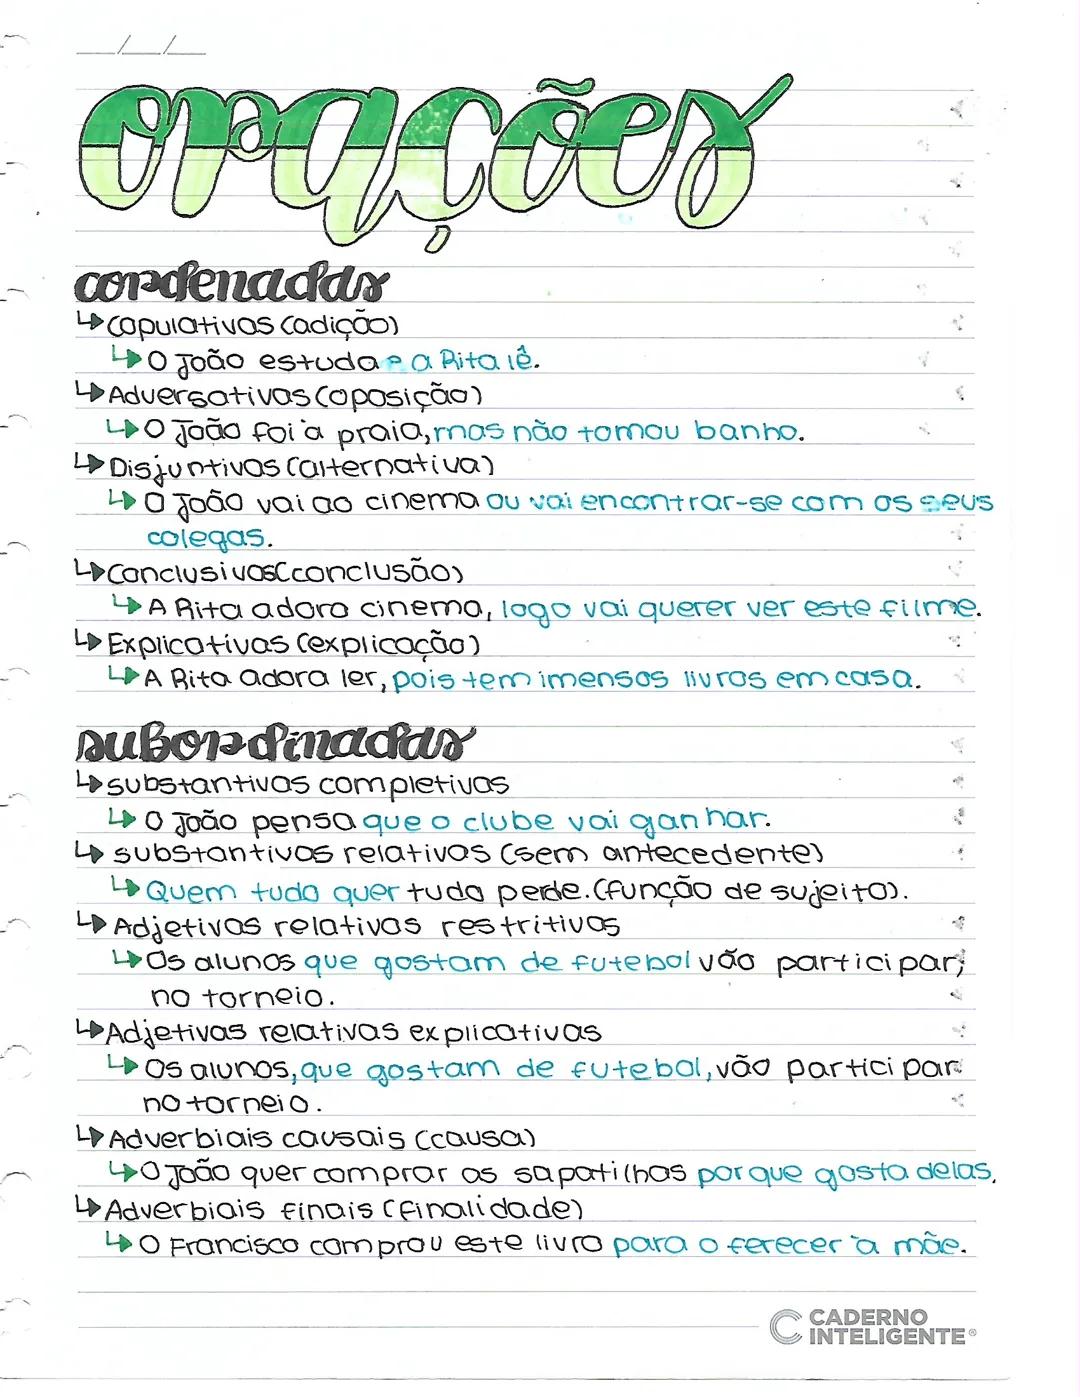 __/__/__
orações
cordenadas
↳Copulativas (adição)
↳O João estuda e a Rita lê.
↳Adversativas (oposição)
↳O João foi à praia, mas não tomou banho.
↳Disjuntivas (alternativa)
↳O João vai ao cinema ou vai encontrar-se com os seus
colegas.
↳Conclusivas (conclusão)
↳A Rita adora cinema, logo vai querer ver este filme.
↳Explicativas (explicação)
↳A Rita adora ler, pois tem imensos livros em casa.
subordinadas
↳substantivas completivas
↳O João pensa que o clube vai ganhar.
↳substantivas relativas (sem antecedente)
↳Quem tudo quer tudo perde. (função de sujeito).
↳Adjetivas relativas restritivas
↳Os alunos que gostam de futebol vão participar
no torneio.
↳Adjetivas relativas explicativas
↳Os alunos, que gostam de futebol, vão participar
no torneio.
↳Adverbiais causais (causa)
↳O João quer comprar as sapatilhas porque gosta delas.
↳Adverbiais finais (finalidade)
↳O Francisco comprou este livro para oferecer à mãe.
CADERNO
INTELIGENTE®